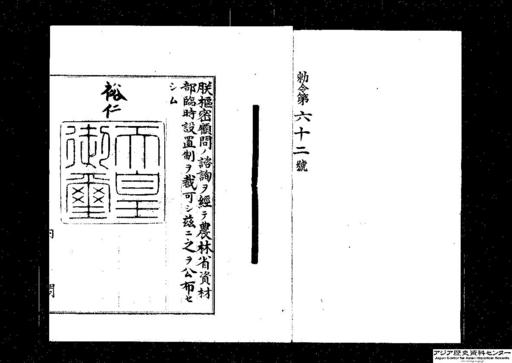 勅令第六十二號
朕樞密顧問ノ諮詢ヲ經テ農林省資材
部臨時設置制ヲ裁可シ茲ニ之ヲ公布セ
シム
裕仁
天皇
御璽
内閣
アジア歴史資料センター
Japan Center for Asian Historical Records